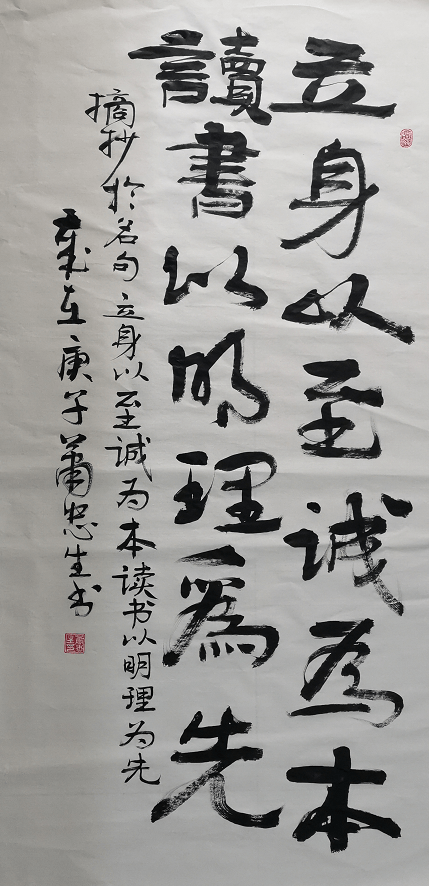 立身以至诚為本
讀書以明理為先
摘抄於名句立身以至诚为本读书以明理为先
歲在庚子蕭忠生书